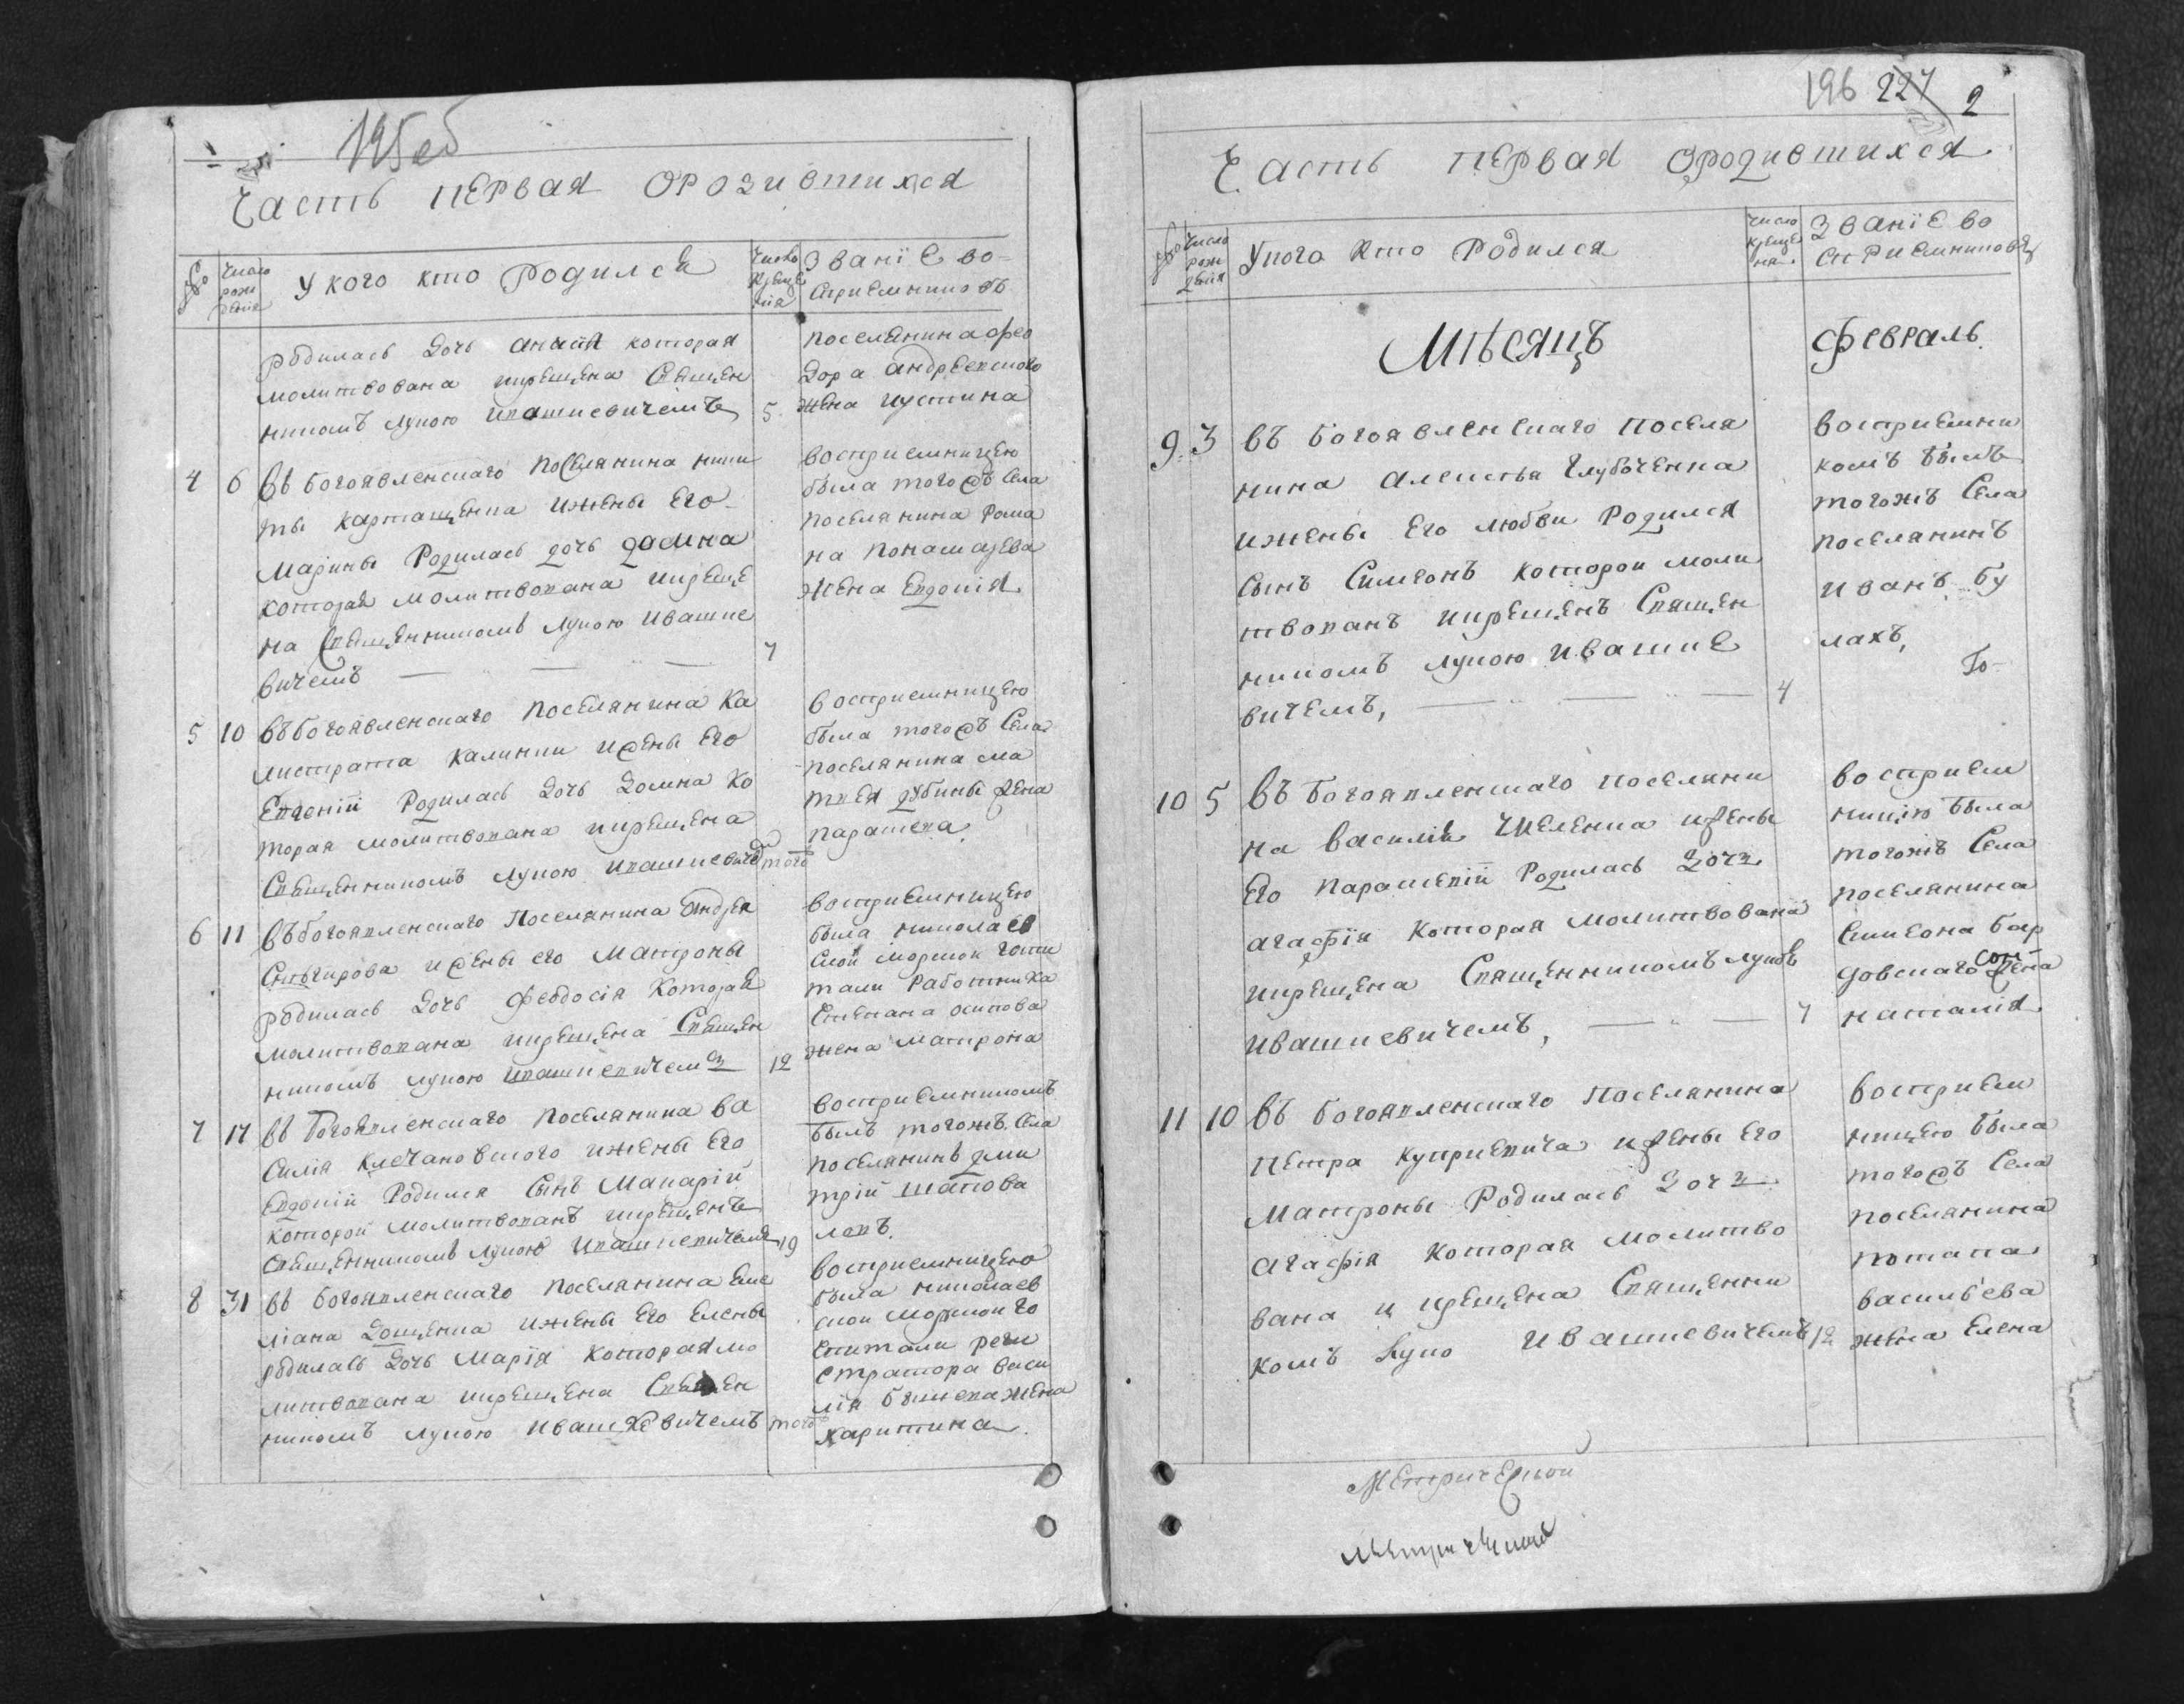 195об
Часть первая ородившихся
№ Число рож дения
У кого кто родился
Число креще нія
Званіе во-
сприемниковъ
родилась дочь которая
молитвована икрещена Священ
никомъ Лукою Ивашкевичемъ 5.
поселянина фео
дора андреевского
жена иустина
4 6 въ богоявленскаго поселянина ники
ты карташенка ижены Его
Марины Родилась дочь домна
которая молитвована икреще
на Священникомъ Лукою Ивашке
вичемъ — „ — „ — 7
восприемницею
была тогожъ села
поселянина рома
на
жена Евдокія
5 10 въбогоявленскаго поселянина Ка
листрата калинки ижены Его
Евгеніи Родилась дочь домна ко
торая молитвована икрещена
Священникомъ Лукою Ивашкевиче того
восприемницею
была тогожъ Села
поселянина ма
твея дубины жена
параскева
6 11 въбогоявленскаго Поселянина андрея
Снѣгирова ижены его Матроны
родилась дочь Феодосія Которая
молитвована икрещена Священ
никомъ лукою Ивашкевичемъ 12
восприемницею
была николаев
ской морской гоши
тали Работника
Степана осипова
жена матрона
7 17 въ Богоявленскаго поселянина ва
силія Клечановского ижены Его
Евдокіи Родился Сынъ Макарій
которой молитвованъ икрещенъ
Священникомъ лукою Ивашкевичемъ 19
восприемникомъ
былъ тогожъ Села
поселянинъ дми
трій шапова
ловъ.
8 31 въ богоявленскаго поселянина Еме
ліана ижены Его Елены
родилась дочь Марія которая мо
литвована икрещена Священ
никомъ лукою Ивашкевичемъ того
восприемницею
была николаев
ской морской го
спитали реги
стратора васи
лія жена
харитина
196 227 2
Часть первая ородившихся
№ Число рож денія
Укого кто Родился
Число креще нія.
Званіе во
сприемниковъ
Мѣсяцъ февраль.
9. 3 въ богоявленскаго поселя
нина алексѣя Глубоченка
ижены Его любви Родился
Сынъ Симеонъ которой моли
твованъ икрещенъ Священ
никомъ лукою Ивашке
вичемъ, — „ — „ — 4
восприемни
комъ былъ
тогожъ Села
поселянинъ
иванъ бу
лахъ,
10 5 въ Богоявленскаго поселяни
на василія ижены
Его параскевіи Родилась дочь
агафія которая молитвована
икрещена Священникомъ лукою
ивашкевичемъ, — „ — 7
восприем
ницею была
тогожъ Села
поселянина
Симеона бар
довскаго жена
наталія.
11 10 въ богоявленскаго поселянина
петра куприевича ижены Его
Матроны Родилась дочь
агафія которая молитво
вана и крещена Священни
комъ Луко Ивашкевичемъ 12
восприем
ницею была
тогожъ Села
поселянина
потапа
васильева
жена Елена
Метрической
Метрической